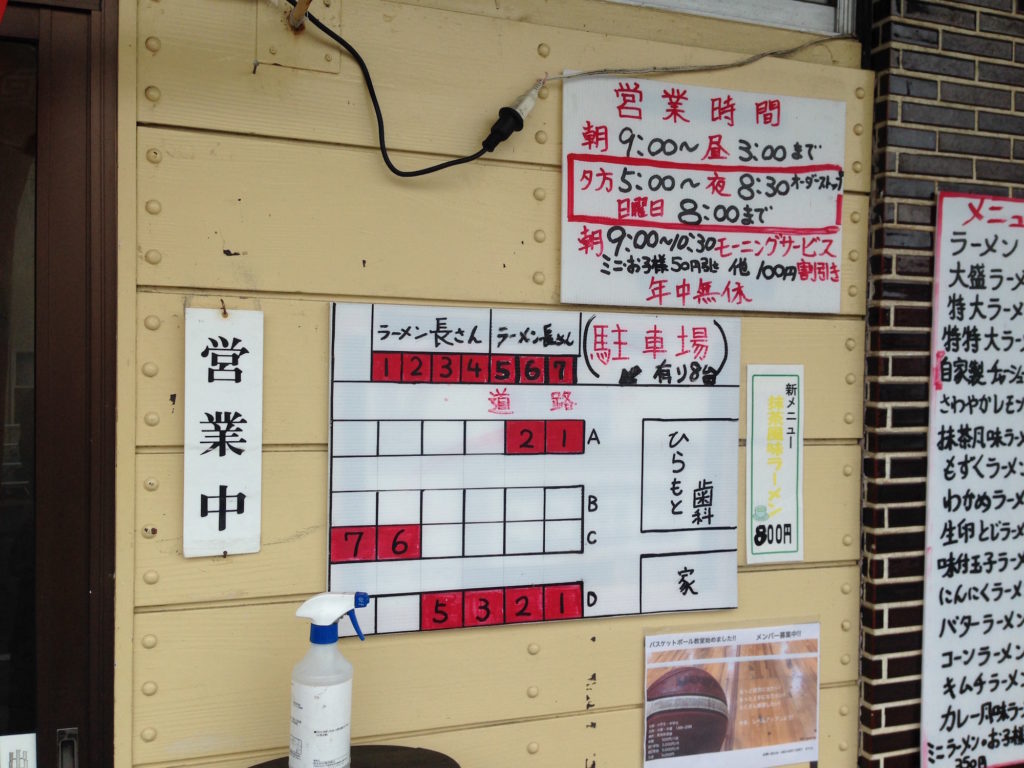 営業時間
朝 9:00〜昼 3:00まで
夕方 5:00〜夜 8:30 オーダーストップ
日曜日 8:00まで
朝 9:00〜10:30 モーニングサービス
ミニ・お子様 50円引き 他 100円割引き
年中無休
営業中
ラーメン長さん ラーメン長さん
1 2 3 4 5 6 7
(駐車場)
有り8台
道路
2 1 A
B
7 6 C
5 3 2 1 D
ひらもと
歯科
家
新メニュー
抹茶風味ラーメン
800円
バスケットボール教室始めました!! メンバー募集中!!
メニュ
ラーメン
大盛ラーメ
特大ラー
特特大ラ
自家製チャーシュ
さわやかレモン
抹茶風味ラー
もずくラーメン
わかめラーメ
生卵とじラーメ
味付玉子ラーメ
にんにくラーメ
バターラーメン
コーンラーメン
キムチラーメン
カレー風味ラー
ミニラーメン・お子様
350円